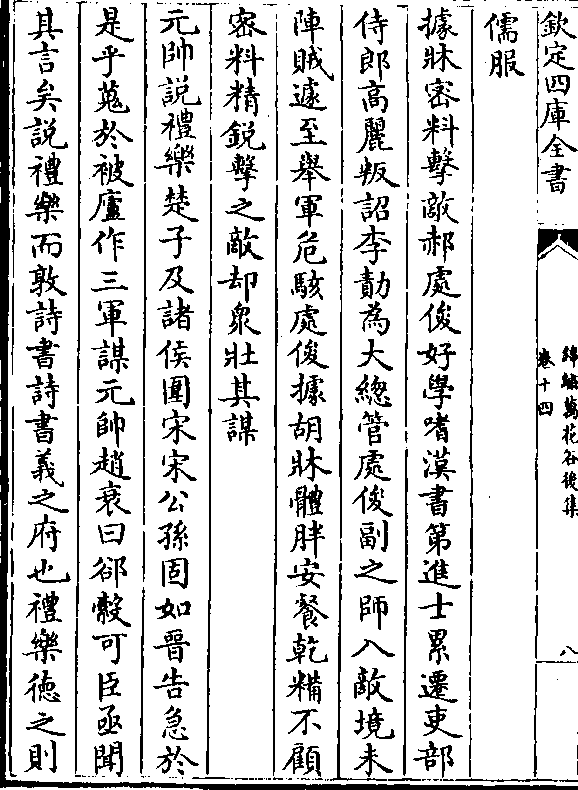 欽定四庫全書
錦繡萬花谷後集
卷十四
八
儒服
據牀密料擊敵郝處俊好學嗜漢書第進士累遷吏部
侍郎高麗叛詔李勣為大總管處俊副之師入敵境未
陣賊遽至舉軍危駭處俊據胡牀體胖安餐乾糒不顧
密料精鋭擊之敵却衆壯其謀
元帥説禮樂楚子及諸侯圍宋宋公孫固如晉告急於
是乎蒐於被廬作三軍謀元帥趙衰曰郤縠可臣亟聞
其言矣説禮樂而敦詩書詩書義之府也禮樂徳之則